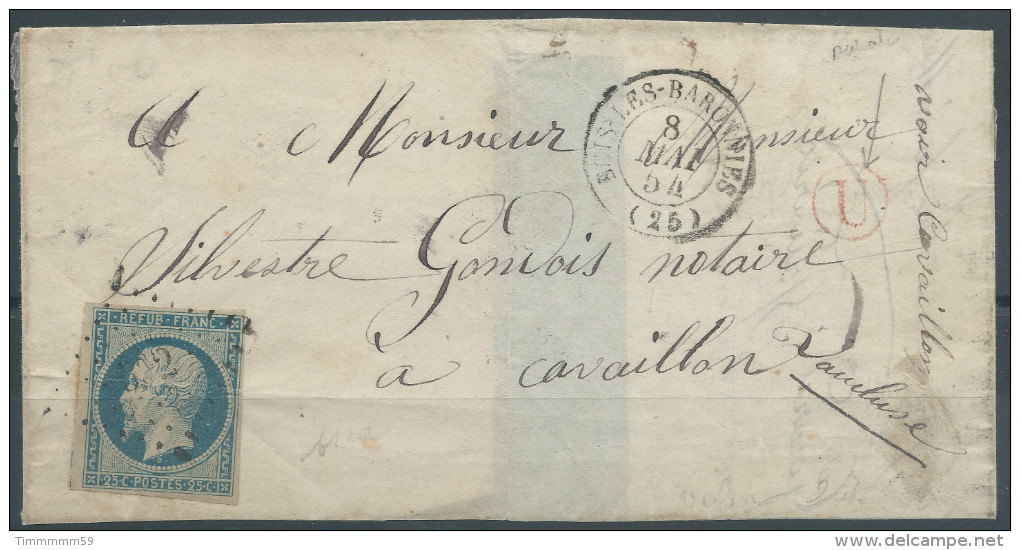 A Monsieur Monsieur
Silvestre Gondois notaire
à Cavaillon
Vaucluse
BUIS-LES-BARONNIES
8
MAI
54
(25)
U
REPUB·FRANC·
25·C·POSTES·25·C·
Timmmmm59
delcampe.net